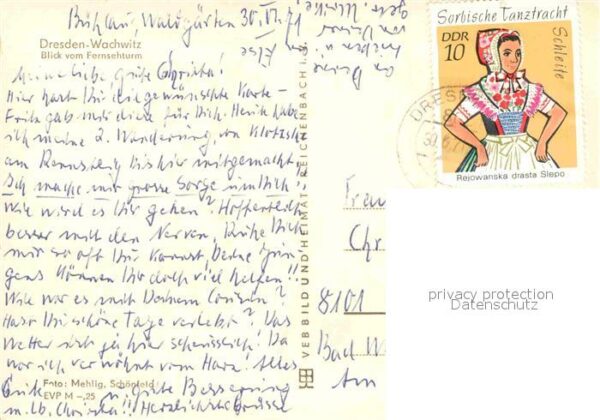 Bühlau, Waldgärten 30.VI.71
Dresden-Wachwitz
Blick vom Fernsehturm
Meine liebe, gute Christa!
Hier hast Du die gewünschte Karte –
gab mir diese für Dich. Heute habe
ich meine 2. Wanderung von Klotzsche
am bis hier mitgemacht.
Ich mache mir grosse Sorge um Dich!
Wie wird es Dir gehen? Hoffentlich
besser mit den Nerven. Ruhe Dich
nur so oft Du kannst. Deine Jun-
gens können Dir doch viel helfen!!
Wie war es mit Deinem
Hast Du schöne Tage verlebt? Das
Wetter ist ja hier scheusslich! Da
war ich verwöhnt vom Harz! Alles
Gute u. gute Besserung
m. lb. Christa!! Herzlichste Grüsse
Else
Foto: Mehlig, Schönfeld
EVP M –,25
VEB BILD UND HEIMAT REICHENBACH I. V.
Sorbische Tanztracht
DDR
10
Schleife
Rejowanska drasta Slepo
DRESD
30.6.71
Frau
Chr
8101
Bad W
Am
privacy protection
Datenschutz